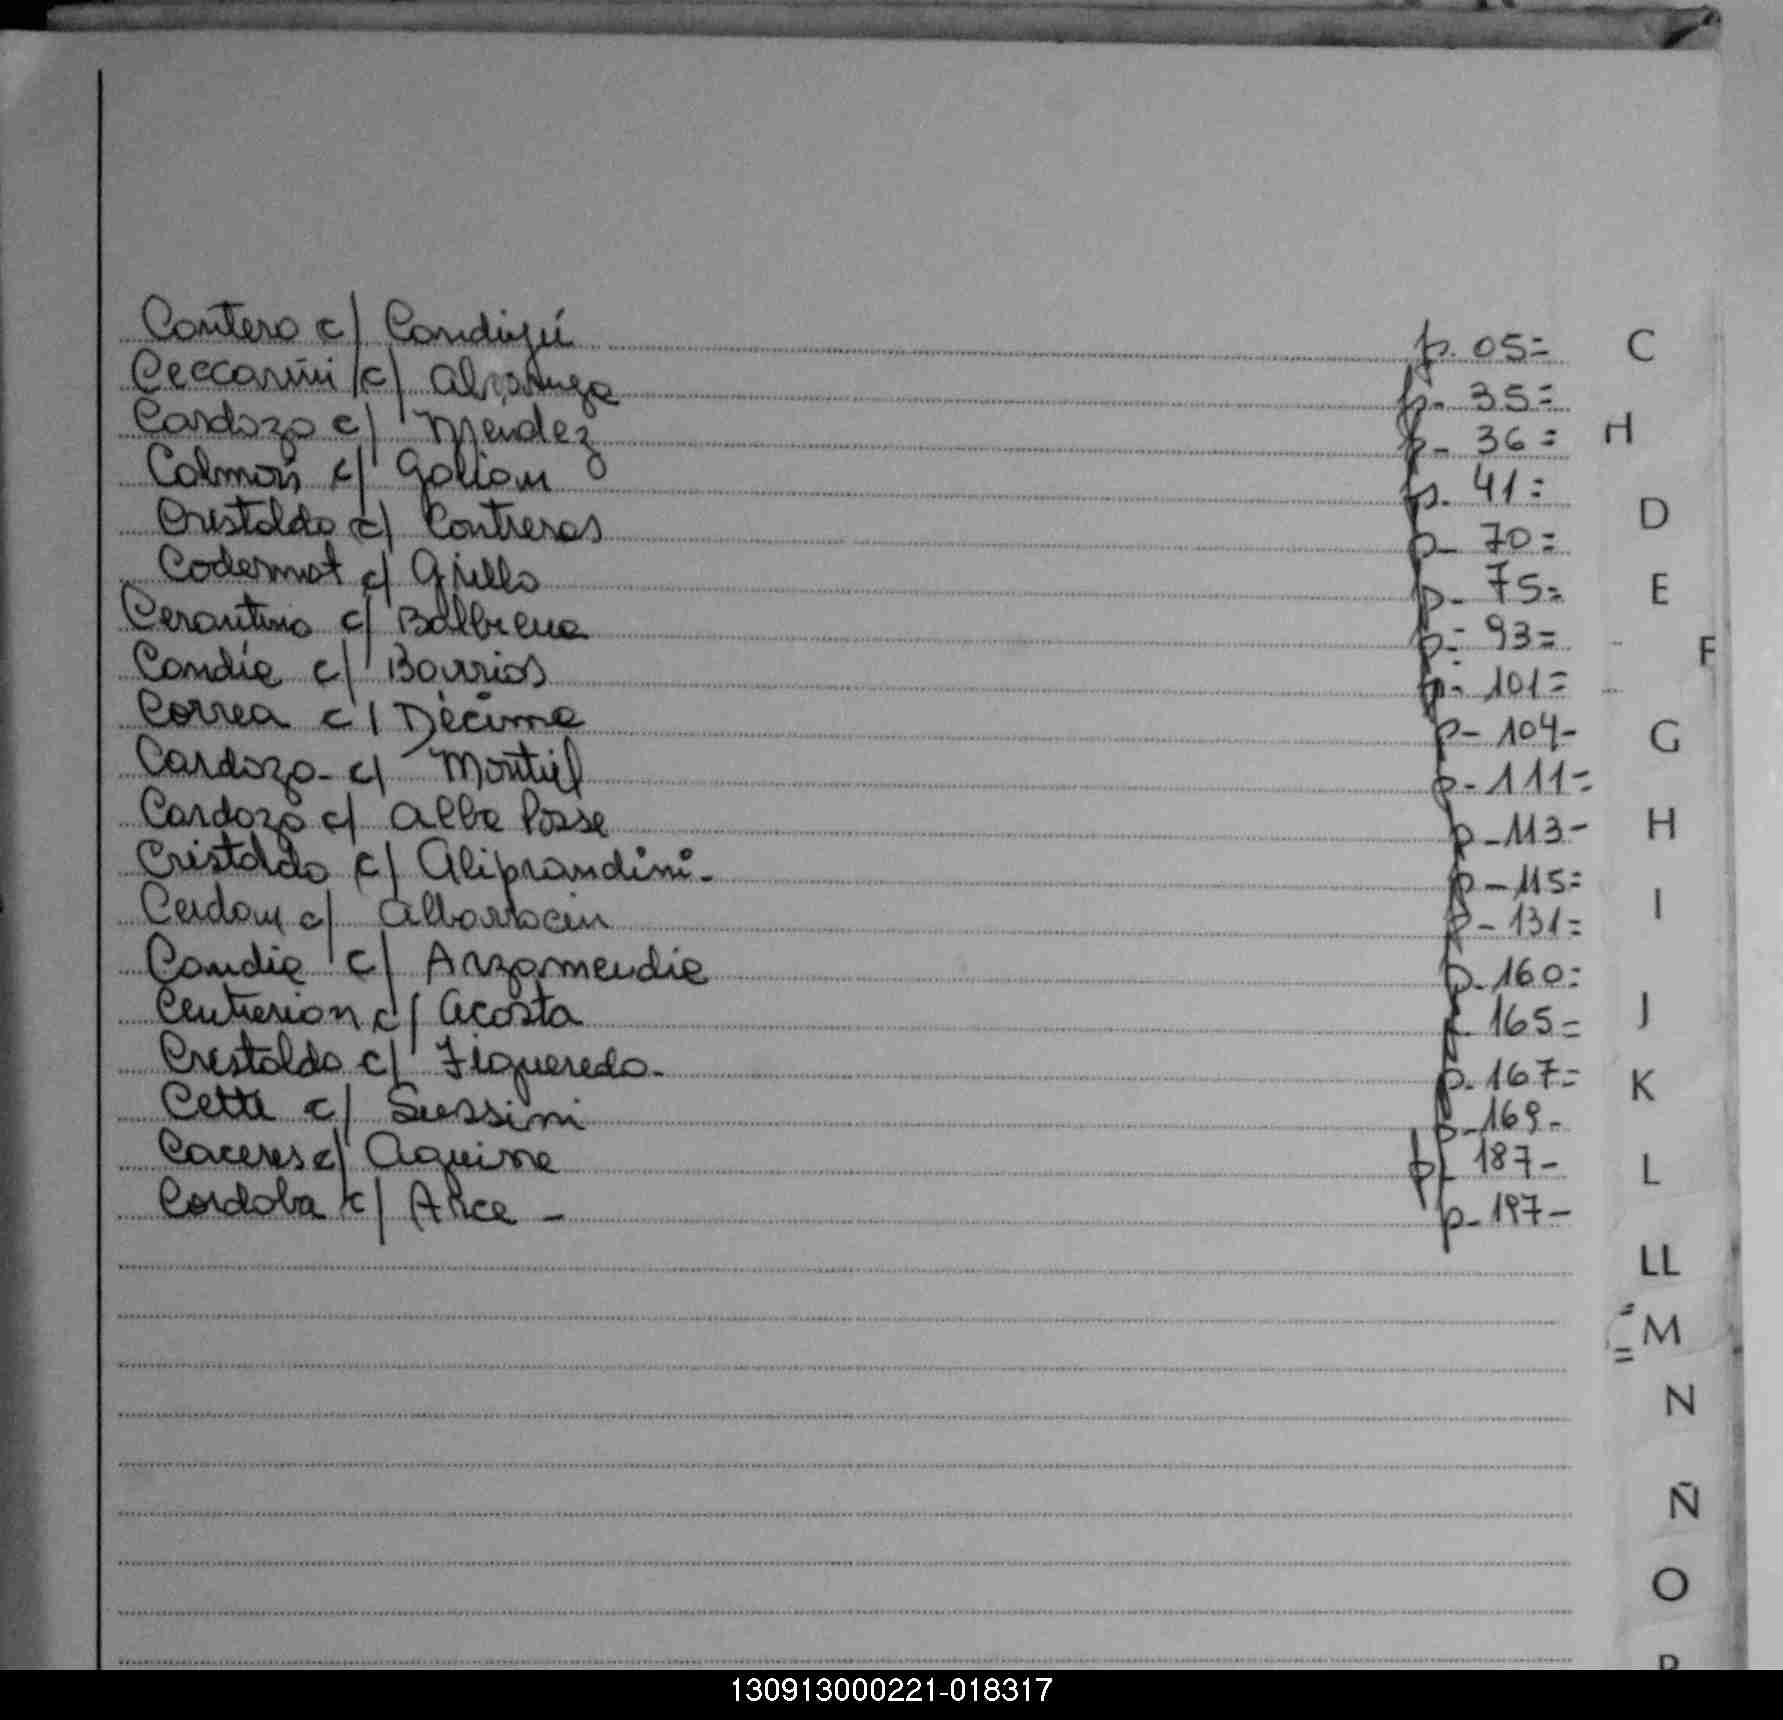 Cantero c/ Candiyú p. 05= C
Ceccarini c/ p- 35=
Cardozo c/ Mendez p- 36= H
c/ p. 41=
Cristaldo c/ Contreras p- 70= D
Codermat c/ Grillo p- 75= E
Cerantino c/ Balbuena p- 93= F
Candia c/ Barrios p- 101=
Correa c/ Décima p- 104- G
Cardozo- c/ Montiel p- 111=
Cardozo c/ Alba Posse p-113- H
Cristaldo c/ Aliprandini- p-115=
c/ Albarracin p- 131= I
Candia c/ Arzamendia p-160=
Centurion c/ Acosta p- 165= J
Cristaldo c/ Figueredo- p- 167= K
Cette c/ Sussini p-169-
Caceres c/ Aguirre p- 187- L
Cordoba c/ Arce - p- 197-
LL
M
N
Ñ
O
130913000221-018317